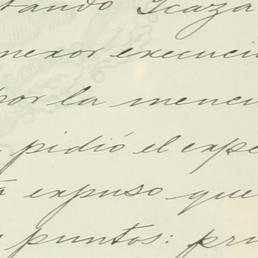 tando Icaza
menor execuci
por la menci
pidió el expe
ta expuso que
puntos: pri